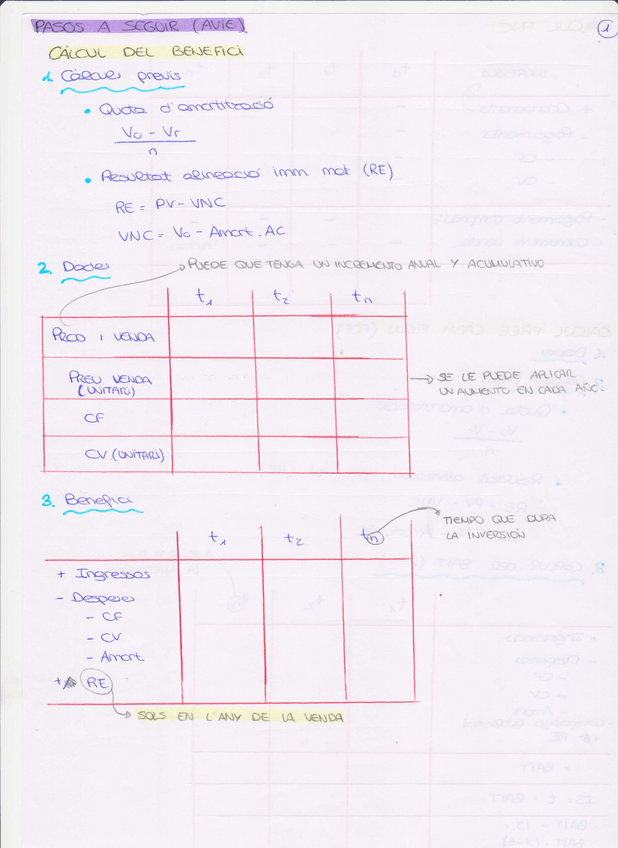 PASOS A SEGUIR (AVIE)
1
CÀLCUL DEL BENEFICI
1. Càlculs previs
• Quota d'amortització
Vo - Vr
n
• Resultat alineació imm. mat (RE)
RE = PV - VNC
VNC = Vo - Amort. AC
2. Dades
PUEDE QUE TENGA UN INCREMENTO ANUAL Y ACUMULATIVO
t1 t2 tn
PROD I VENDA
PREU VENDA
(UNITARI)
SE LE PUEDE APLICAR
UN AUMENTO EN CADA AÑO.
CF
CV (UNITARI)
3. Benefici
TIEMPO QUE DURA
LA INVERSIÓN
t1 t2 tn
+ Ingressos
- Despeses
- CF
- CV
- Amort.
+ RE
SOLS EN L'ANY DE LA VENDA